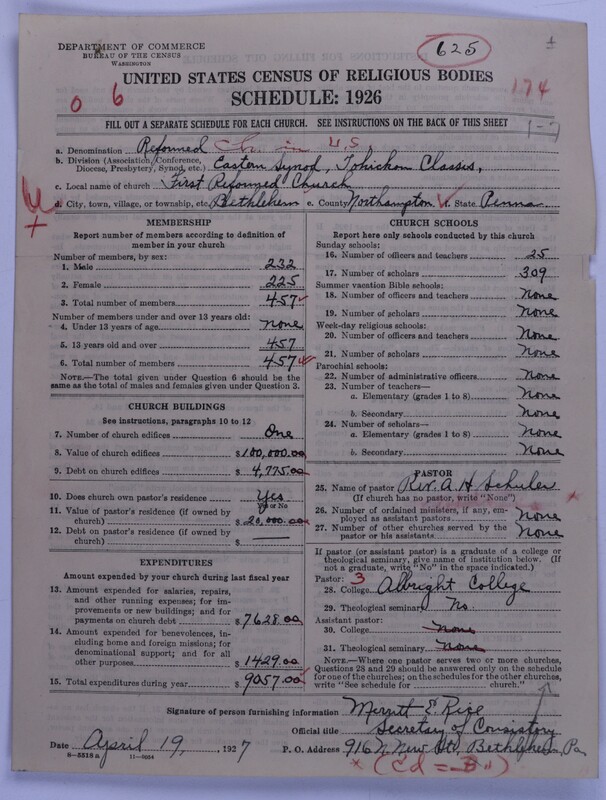 625
±
DEPARTMENT OF COMMERCE
BUREAU OF THE CENSUS
WASHINGTON
UNITED STATES CENSUS OF RELIGIOUS BODIES
SCHEDULE: 1926
0 6
174
FILL OUT A SEPARATE SCHEDULE FOR EACH CHURCH. SEE INSTRUCTIONS ON THE BACK OF THIS SHEET
1-7
a. Denomination Reformed Ch. in U.S.
b. Division (Association, Conference, Diocese, Presbytery, Synod, etc.) Eastern Synod, Tohickon Classis,
c. Local name of church First Reformed Church
d. City, town, village, or township, etc. Bethlehem e. County Northampton f. State Penna
MEMBERSHIP
Report number of members according to definition of member in your church
Number of members, by sex:
1. Male 232
2. Female 225
3. Total number of members 457
Number of members under and over 13 years old:
4. Under 13 years of age None
5. 13 years old and over 457
6. Total number of members 457
NOTE.—The total given under Question 6 should be the same as the total of males and females given under Question 3.
CHURCH BUILDINGS
See instructions, paragraphs 10 to 12
7. Number of church edifices One
8. Value of church edifices $100,000.00
9. Debt on church edifices $4,775.00
10. Does church own pastor's residence Yes
Yes or No
11. Value of pastor's residence (if owned by church) $20,000.00
12. Debt on pastor's residence (if owned by church) $ ——
EXPENDITURES
Amount expended by your church during last fiscal year
13. Amount expended for salaries, repairs, and other running expenses; for improvements or new buildings; and for payments on church debt $7628.00
14. Amount expended for benevolences, including home and foreign missions; for denominational support; and for all other purposes $1429.00
15. Total expenditures during year $9057.00
CHURCH SCHOOLS
Report here only schools conducted by this church
Sunday schools:
16. Number of officers and teachers 25
17. Number of scholars 309
Summer vacation Bible schools:
18. Number of officers and teachers None
19. Number of scholars None
Week-day religious schools:
20. Number of officers and teachers None
21. Number of scholars None
Parochial schools:
22. Number of administrative officers None
23. Number of teachers—
a. Elementary (grades 1 to 8) None
b. Secondary None
24. Number of scholars—
a. Elementary (grades 1 to 8) None
b. Secondary None
PASTOR
25. Name of pastor Rev. A. H. Schuler
(If church has no pastor, write "None")
26. Number of ordained ministers, if any, employed as assistant pastors None
27. Number of other churches served by the pastor or his assistants None
If pastor (or assistant pastor) is a graduate of a college or theological seminary, give name of institution below. (If not a graduate, write "No" in the space indicated.)
Pastor: 3
28. College Albright College
29. Theological seminary No
Assistant pastor:
30. College None
31. Theological seminary None
NOTE.—Where one pastor serves two or more churches, Questions 28 and 29 should be answered only on the schedule for one of the churches; on the schedules for the other churches, write "See schedule for ........ church."
Signature of person furnishing information Merritt E. Rise
Official title Secretary of Consistory
Date April 19, 1927 P. O. Address 916 N. New St., Bethlehem, Pa
8—5518 a 11—9034